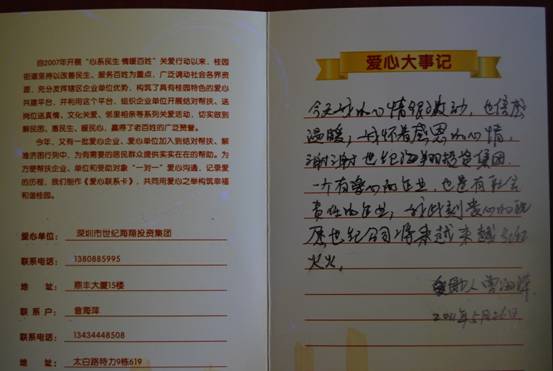 自2007年开展“心系民生 情暖百姓”关爱行动以来，桂园
街道坚持以改善民生、服务百姓为重点，广泛调动社会各界资
源，充分发挥辖区企业单位优势，构筑了具有桂园特色的爱心
共建平台，并利用这个平台，组织企业单位开展结对帮扶、送
岗位送真情、文化关爱、邻里相亲等系列关爱活动，切实做到
解民困、惠民生、暖民心，赢得了老百姓的广泛赞誉。
今年，又有一批爱心企业、爱心单位加入到结对帮扶、解
难济困行列中，为有需要的居民群众提供实实在在的帮助。为
方便帮扶企业、单位和受助对象“一对一”爱心沟通，记录爱
的历程，我们制作《爱心联系卡》，共同用爱心之举构筑幸福
和谐桂园。
爱心单位：深圳市世纪海翔投资集团
联系电话：1380885995
地 址：鼎丰大厦15楼
联 系 户：曾海萍
联系电话：13434448508
地 址：太白路特力9栋619
爱心大事记
今天我的心情很激动，也倍感
温暖，我怀着感恩的心情，
谢谢世纪海翔投资集团
一个有爱心的企业，也是有社会
责任的企业，我此刻衷心的祝
愿世纪公司将来越来越红红
火火。
受助人
2011年5月26日